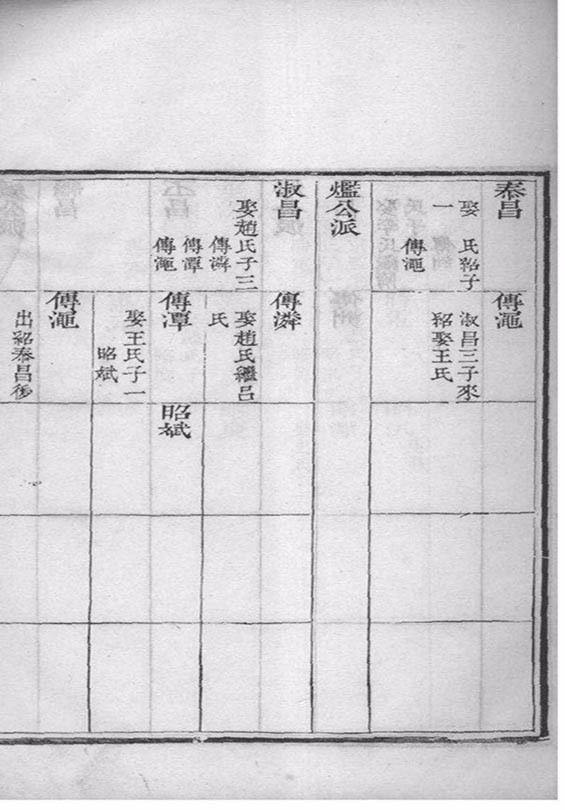 泰昌
娶 氏紹子
一
傳澠
傳澠
淑昌三子來
紹娶王氏
爁公派
淑昌
娶趙氏子三
傳潾
傳潭
傳澠
傳潾
娶趙氏繼呂
氏
傳潭
娶王氏子一
昭斌
昭斌
傳澠
出紹泰昌後